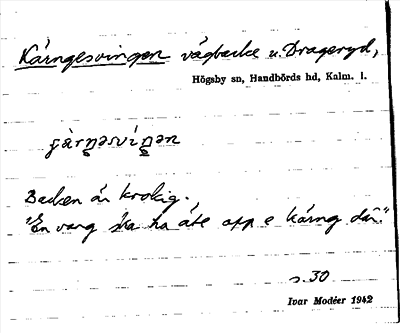 Kärngesvingen vägbacke u. Drageryd,
Högsby sn, Handbörds hd, Kalm. l.
Backen är krokig.
"En varg ska ha äte opp e käring där."
s. 30
Ivar Modéer 1942